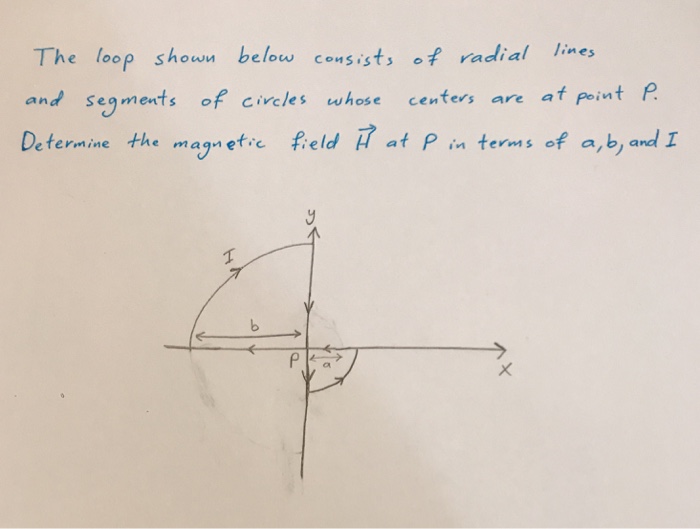 The loop shown below consists of radial lines
and segments of circles whose centers are at point P.
Determine the magnetic field H⃗ at P in terms of a, b, and I
y
I
b
P
a
x